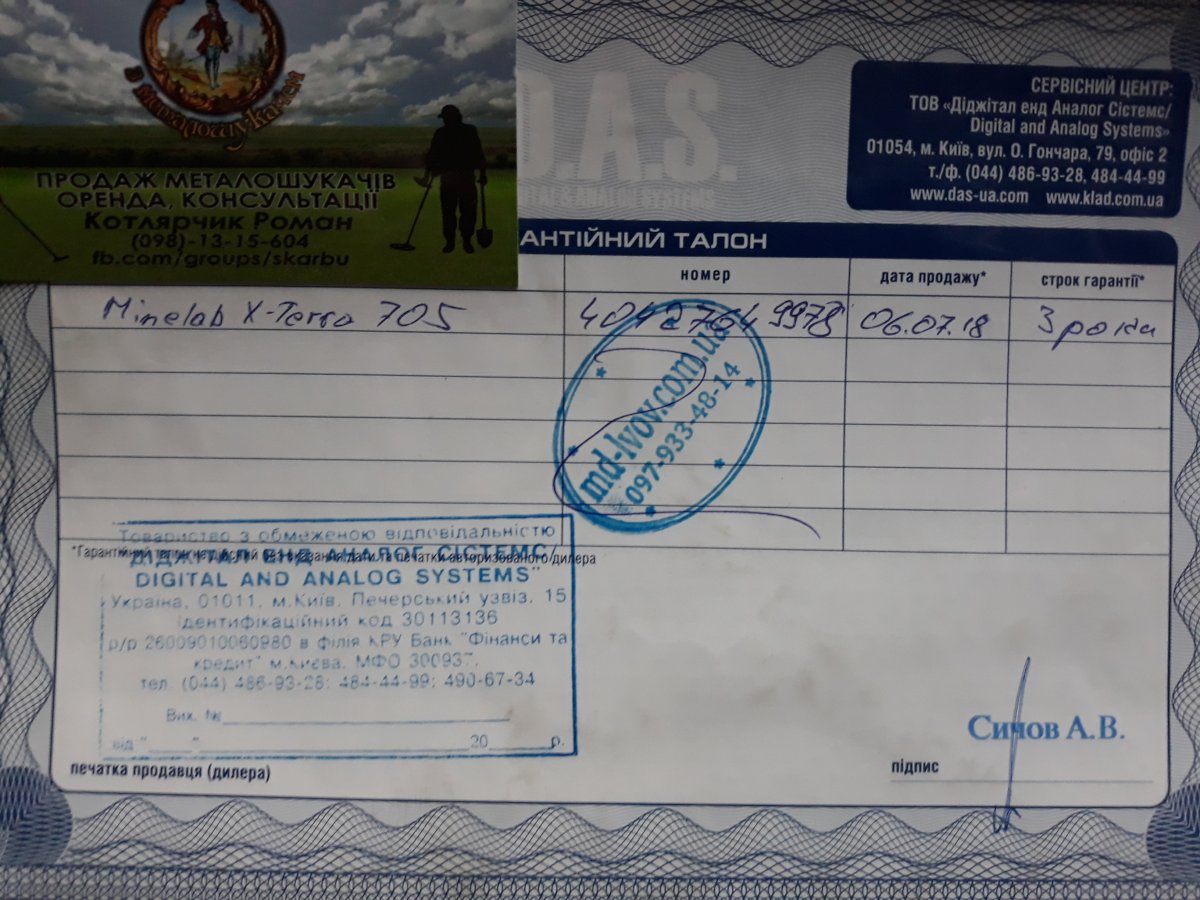 В Металошукачем
ПРОДАЖ МЕТАЛОШУКАЧІВ
ОРЕНДА, КОНСУЛЬТАЦІЇ
Котлярчик Роман
(098)-13-15-604
fb.com/groups/skarbu
D.A.S.
DIGITAL & ANALOG SYSTEMS
СЕРВІСНИЙ ЦЕНТР:
ТОВ «Діджітал енд Аналог Сістемс/
Digital and Analog Systems»
01054, м. Київ, вул. О. Гончара, 79, офіс 2
т./ф. (044) 486-93-28, 484-44-99
www.das-ua.com www.klad.com.ua
АНТІЙНИЙ ТАЛОН
номер дата продажу* строк гарантії*
Minelab X-Terra 705 40427649978 06.07.18 3 роки
md-lvov.com.ua
097-933-48-14
Товариство з обмеженою відповідальністю
*Гарантійний талон не дійсний без вказання дати та печатки авторизованого дилера
ДІДЖІТАЛ ЕНД АНАЛОГ СІСТЕМС/
DIGITAL AND ANALOG SYSTEMS"
Україна, 01011, м.Київ, Печерський узвіз, 15
Ідентифікаційний код 30113136
р/р 26009010060980 в філія КРУ Банк "Фінанси та
кредит" м.Києва, МФО 300937,
тел. (044) 486-93-28; 484-44-99; 490-67-34
Вих. №
від "____" 20 р.
Сичов А.В.
печатка продавця (дилера)
підпис